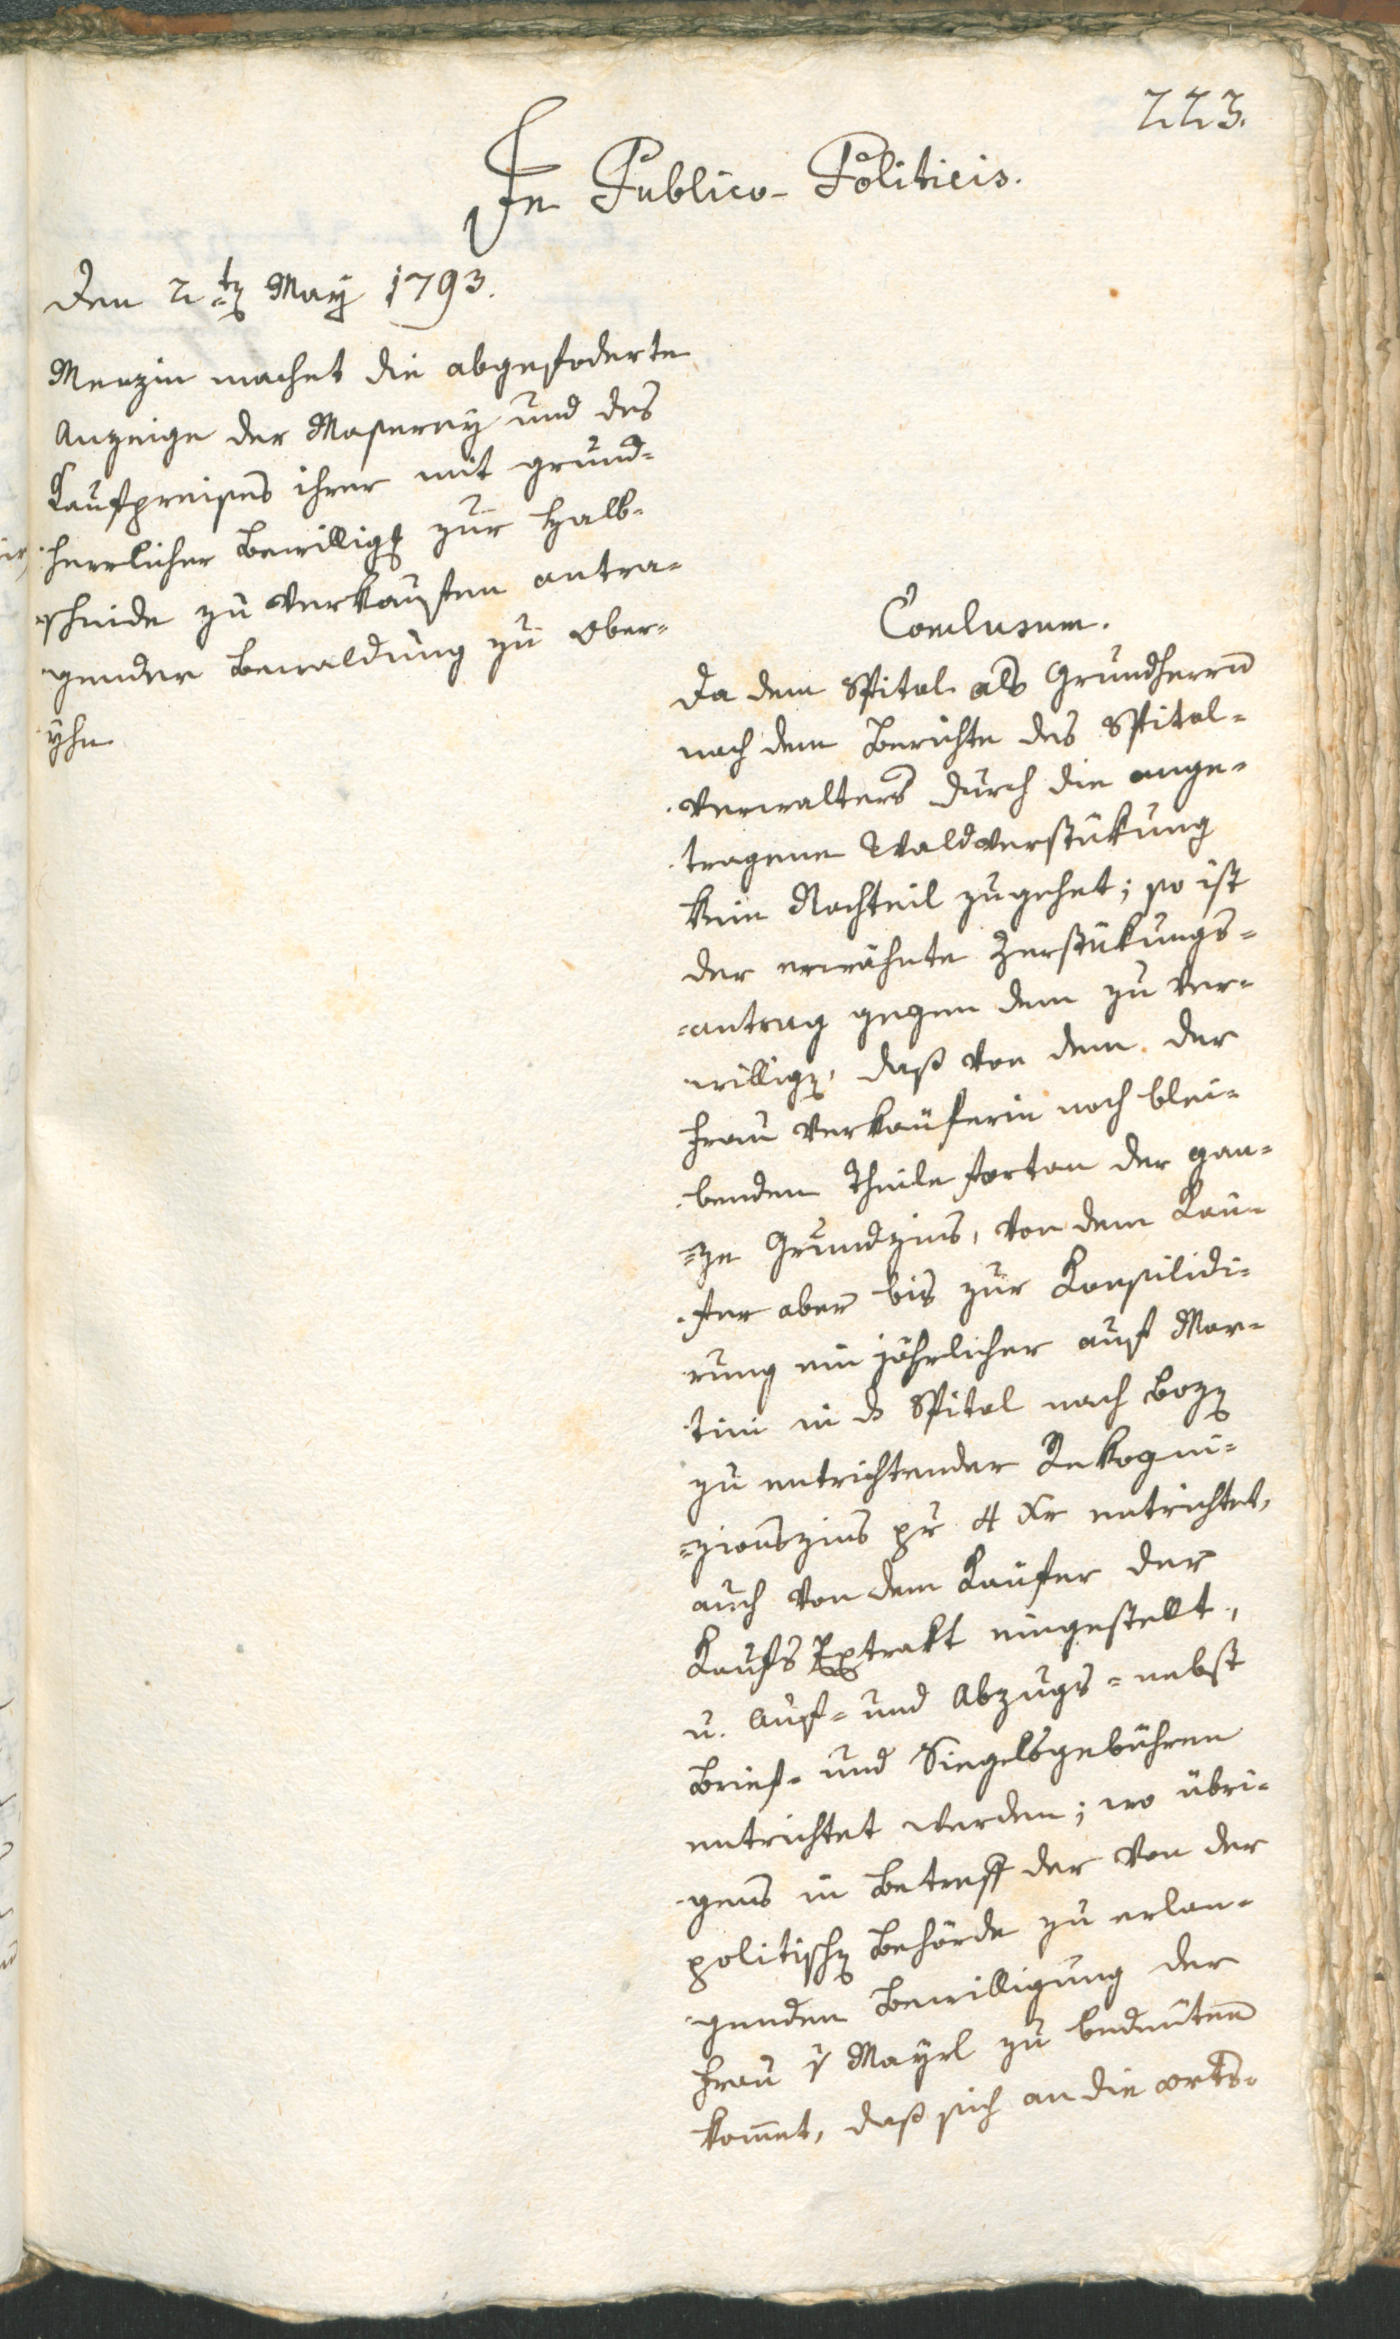 223.
In Publico-Politicis.
Den 2ten May 1793.
Menzin machet die abgefoderte
Anzeige der Maßerey und des
Kaufpreises ihrer mit grund-
herrlicher Bewilligg zur Halb-
scheide zu verkaufen antra-
gender Bewaldung zu Ober-
Conclusum.
Da dem Spital als Grundherrn
nach dem Berichte des Spital-
verwalters durch die ange-
tragene Waldverstükung
kein Nachteil zugehet; so ist
der erwähnte Zerstükungs-
=antrag gegen dem zu ver-
willigen, daß von dem der
Frau Verkäuferin noch blei-
benden Theile fortan der gan-
=ze Grundzins, von dem Käu-
fer aber bis zur Konsilidi-
rung ein jährlicher auf Mar-
tini in d Spital nach Bozen
zu entrichtender Rekogni-
=zionszins pr 4 Xr entrichtet,
auch von dem Käufer der
Kaufs Extrakt eingestellt,
u. Auf- und Abzugs- nebst
Brief- und Siegelsgebühren
entrichtet werden; wo übri-
gens in Betreff der von der
politischen Behörde zu erlan-
genden Bewilligung der
Frau v Mayrl zu bedeuten
kommt, daß sich an die orts-